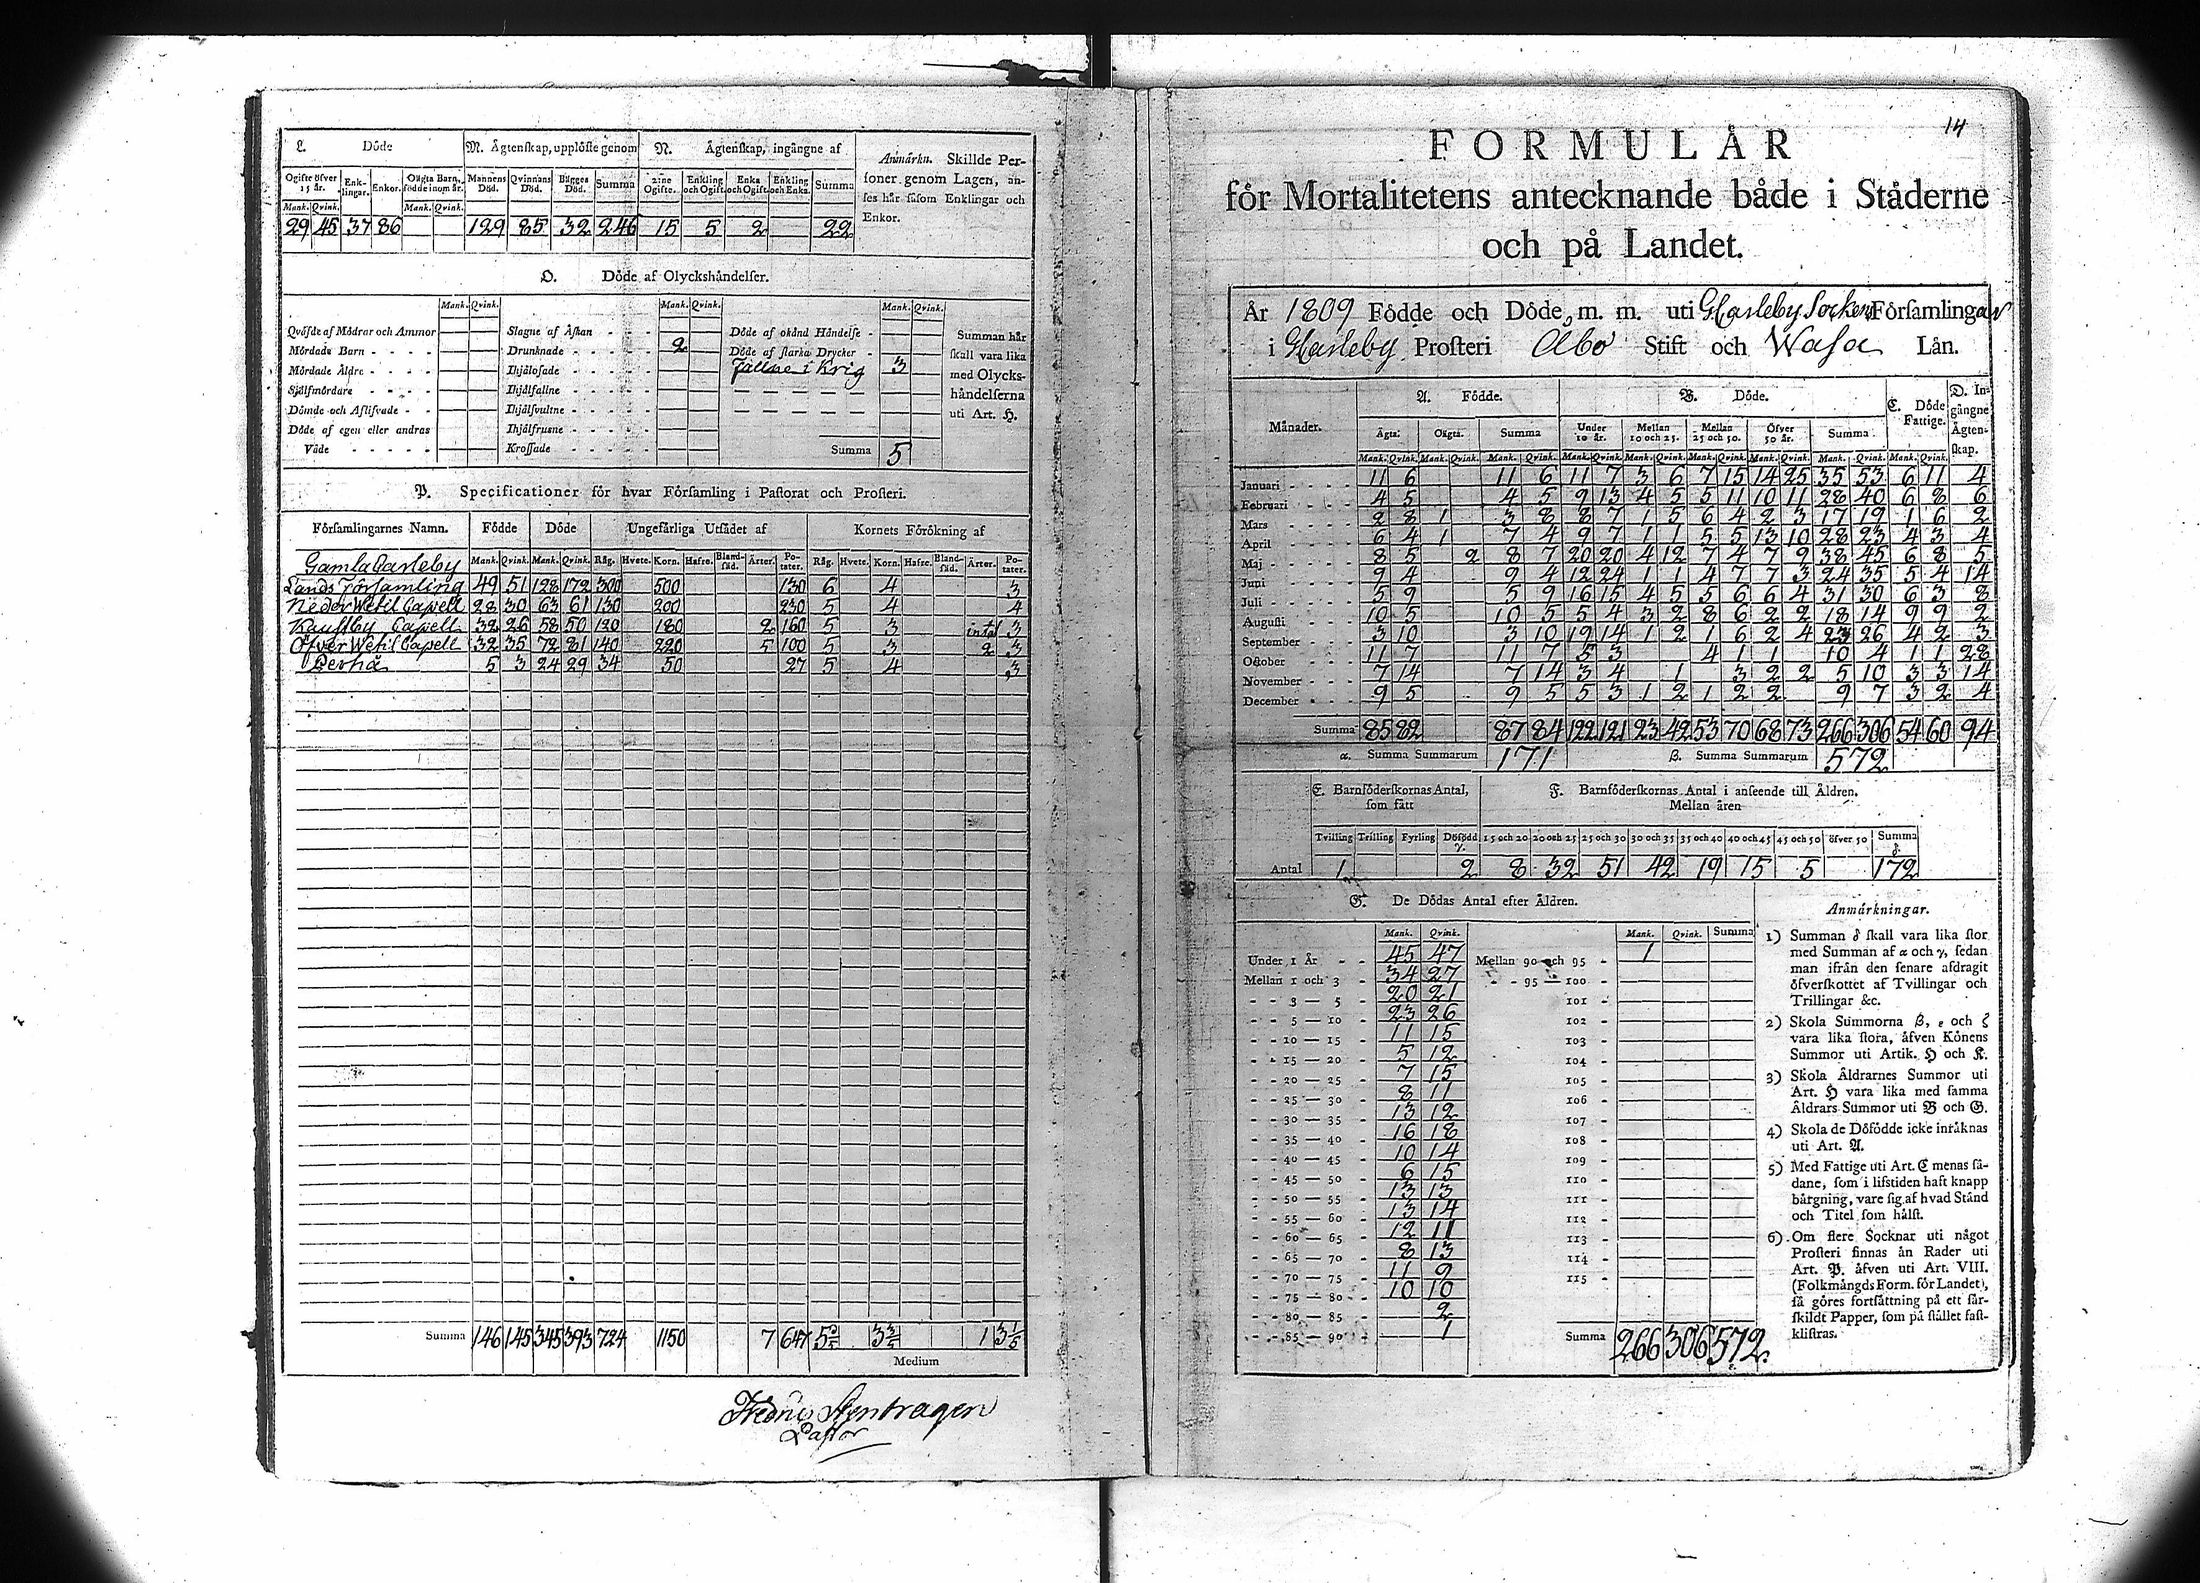 L. Döde
M. Ägtenskap, upplöste genom
N. Ägtenskap, ingångne af
Ogifte öfver 15 år. Enklingar. Enkor. Oägta Barn, födde inom år. Mannens Död. Qvinnans Död. Bägges Död. Summa Ogifte. Enkling och Ogift. Enka och Ogift. Enkling och Enka. Summa
Mank. Qvink. Mank. Qvink.
29 45 37 86 129 85 32 246 15 5 2 22
Anmärkn. Skillde Personer
genom Lagen, an-
ses här såsom Enklingar och
Enkor.
O. Döde af Olyckshändelser.
Mank. Qvink. Mank. Qvink. Mank. Qvink.
Qväfde af Mödrar och Ammor
Mördade Barn
Mördade Äldre
Sjelfmördare
Dömde och Aflifvade
Döde af egen eller andras
Våde
Slagne af Åskan
Drunknade 2
Ihjälosade
Ihjälfallne
Ihjälsvultne
Ihjälfrusne
Krossade
Döde af okänd Händelse
Döde af starka Drycker
Fallne i Krig 3
Summa 5
Summan här
skall vara lika
med Olycks-
händelserna
uti Art. H.
P. Specificationer för hvar Församling i Pastorat och Prosteri.
Församlingarnes Namn. Födde Döde Ungefärliga Utsädet af Kornets Förökning af
Mank. Qvink. Mank. Qvink. Råg. Hvete. Korn. Hafre. Blandsäd. Ärter. Potater. Råg. Hvete. Korn. Hafre. Blandsäd. Ärter. Potater.
Gamla Carleby
Lands Församling 49 51 128 172 300 500 130 6 4 3
Neder Wetil Capell 28 30 63 61 130 200 230 5 4 4
Kaustby Capell 32 26 58 50 120 180 2 160 5 3 intet 3
Öfver Wetil Capell 32 35 72 81 140 220 5 100 5 3 2 3
Perho 5 3 24 29 34 50 27 5 4 3
Summa 146 145 345 393 724 1150 7 647
Medium
Pastor
14
FORMULÄR
för Mortalitetens antecknande både i Städerne
och på Landet.
År 1809 Födde och Döde, m. m. uti GCarleby Socken Församlingar
i GCarleby Prosteri Åbo Stift och Wasa Län.
Månader. A. Födde. B. Döde. C. Döde Fattige. D. Ingångne Ägtenskap.
Ägta. Oägta. Summa Under 10 år. Mellan 10 och 25. Mellan 25 och 50. Öfver 50 år. Summa
Mank. Qvink. Mank. Qvink. Mank. Qvink. Mank. Qvink. Mank. Qvink. Mank. Qvink. Mank. Qvink. Mank. Qvink. Mank. Qvink.
Januari 11 6 11 6 11 7 3 6 7 15 14 25 35 53 6 11 4
Februari 4 5 4 5 9 13 4 5 5 11 10 11 28 40 6 8 6
Mars 2 8 1 3 8 8 7 1 5 6 4 2 3 17 19 1 6 2
April 6 4 1 7 4 9 7 1 1 5 5 13 10 28 23 4 3 4
Maj 8 5 2 8 7 20 20 4 12 7 4 7 9 38 45 6 8 5
Juni 9 4 9 4 12 24 1 1 4 7 7 3 24 35 5 4 14
Juli 5 9 5 9 16 15 4 5 5 6 6 4 31 30 6 3 8
Augusti 10 5 10 5 5 4 3 2 8 6 2 2 18 14 9 9 2
September 3 10 3 10 19 14 1 2 1 6 2 4 23 26 4 2 3
October 11 7 11 7 5 3 4 1 1 10 4 1 1 28
November 7 14 7 14 3 4 1 3 2 2 5 10 3 3 14
December 9 5 9 5 5 3 1 2 1 2 2 9 7 3 2 4
Summa 85 82 87 84 122 121 23 42 53 70 68 73 266 306 54 60 94
α. Summa Summarum 171 β. Summa Summarum 572
E. Barnföderskornas Antal, som fått
F. Barnföderskornas Antal i anseende till Åldren.
Mellan åren
Tvilling Trilling Fyrling Dödfödd γ. 15 och 20 20 och 25 25 och 30 30 och 35 35 och 40 40 och 45 45 och 50 öfver 50 Summa δ
Antal 1 2 8 32 51 42 19 15 5 172
G. De Dödas Antal efter Åldren.
Mank. Qvink. Mank. Qvink. Summa
Under 1 År 45 47 Mellan 90 och 95 1
Mellan 1 och 3 34 27 95 — 100
3 — 5 20 21 101
5 — 10 23 26 102
10 — 15 11 15 103
15 — 20 5 12 104
20 — 25 7 15 105
25 — 30 8 11 106
30 — 35 13 12 107
35 — 40 16 18 108
40 — 45 10 14 109
45 — 50 6 15 110
50 — 55 13 13 111
55 — 60 13 14 112
60 — 65 12 11 113
65 — 70 8 13 114
70 — 75 11 9 115
75 — 80 10 10
80 — 85 2
85 — 90 1
Summa 266 306 572.
Anmärkningar.
1) Summan δ skall vara lika stor
med Summan af α och γ, sedan
man ifrån den senare afdragit
öfverskottet af Tvillingar och
Trillingar &c.
2) Skola Summorna β, ε och ζ
vara lika stora, äfven Könens
Summor uti Artik. H och K.
3) Skola Åldrarnes Summor uti
Art. H vara lika med samma
Åldrars Summor uti B och G.
4) Skola de Dödfödde icke inräknas
uti Art. A.
5) Med Fattige uti Art. C menas så-
dane, som i lifstiden haft knapp
bärgning, vare sig af hvad Stånd
och Titel som hälst.
6) Om flere Socknar uti något
Prosteri finnas än Rader uti
Art. P. äfven uti Art. VIII.
(Folkmängds Form. för Landet),
så göres fortsättning på ett sär-
skildt Papper, som på stället fast-
klistras.